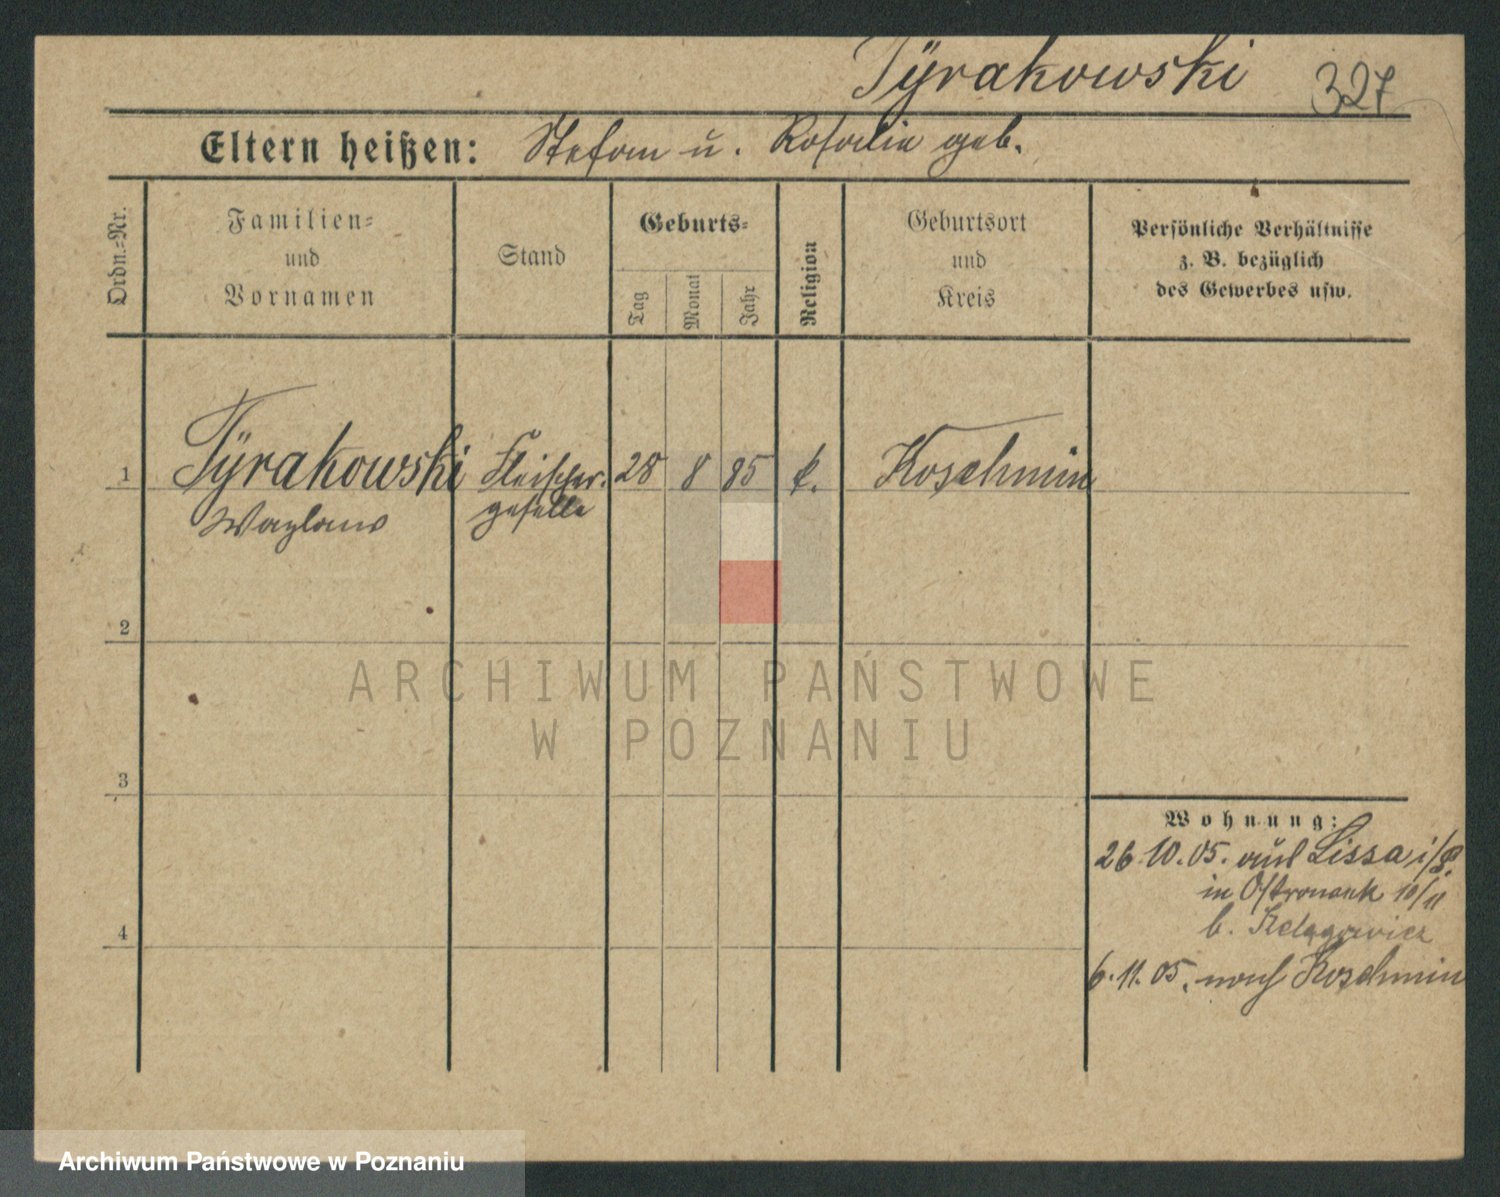 Tÿrakowski 327
Eltern heißen: Stefan u. Rosalie geb.
Ordn.-Nr.
Familien-
und
Vornamen
Stand
Geburts-
Tag
Monat
Jahr
Religion
Geburtsort
und
Kreis
Persönliche Verhältnisse
z. B. bezüglich
des Gewerbes usw.
1 Tÿrakowski Fleischer- 28 8 85 k. Koschmin
Wazlaus geselle
2
3
4
Wohnung:
26.10.05. aus Lissa i/P.
in 10/11
b.
6.11.05. nach Koschmin
ARCHIWUM PAŃSTWOWE
W POZNANIU
Archiwum Państwowe w Poznaniu